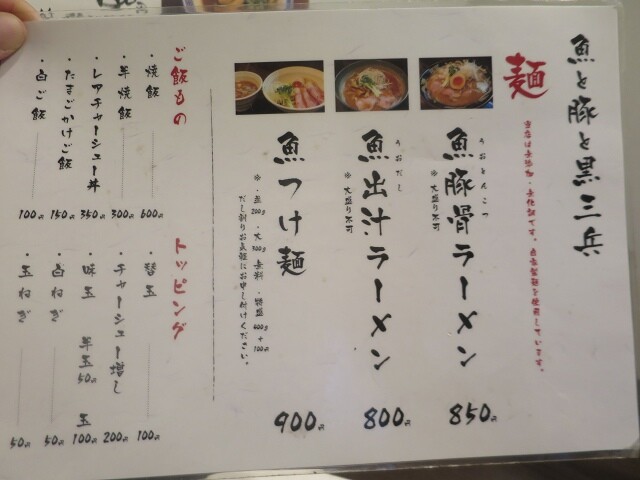 魚と豚と黒三兵
麺
当店は無添加・無化調です。自家製麺を使用しています。
うおとんこつ
魚豚骨ラーメン
※大盛り不可
850円
うおだし
魚出汁ラーメン
※大盛り不可
800円
魚つけ麺
※・並200g・大300g無料・特盛400g+100円
だし割りお気軽にお申し付けください。
900円
ご飯もの
・焼飯 600円
・半焼飯 300円
・レアチャーシュー丼 350円
・たまごかけご飯 150円
・白ご飯 100円
トッピング
・替玉 100円
・チャーシュー増し 200円
・味玉 半玉50円 玉100円
・白ねぎ 50円
・玉ねぎ 50円